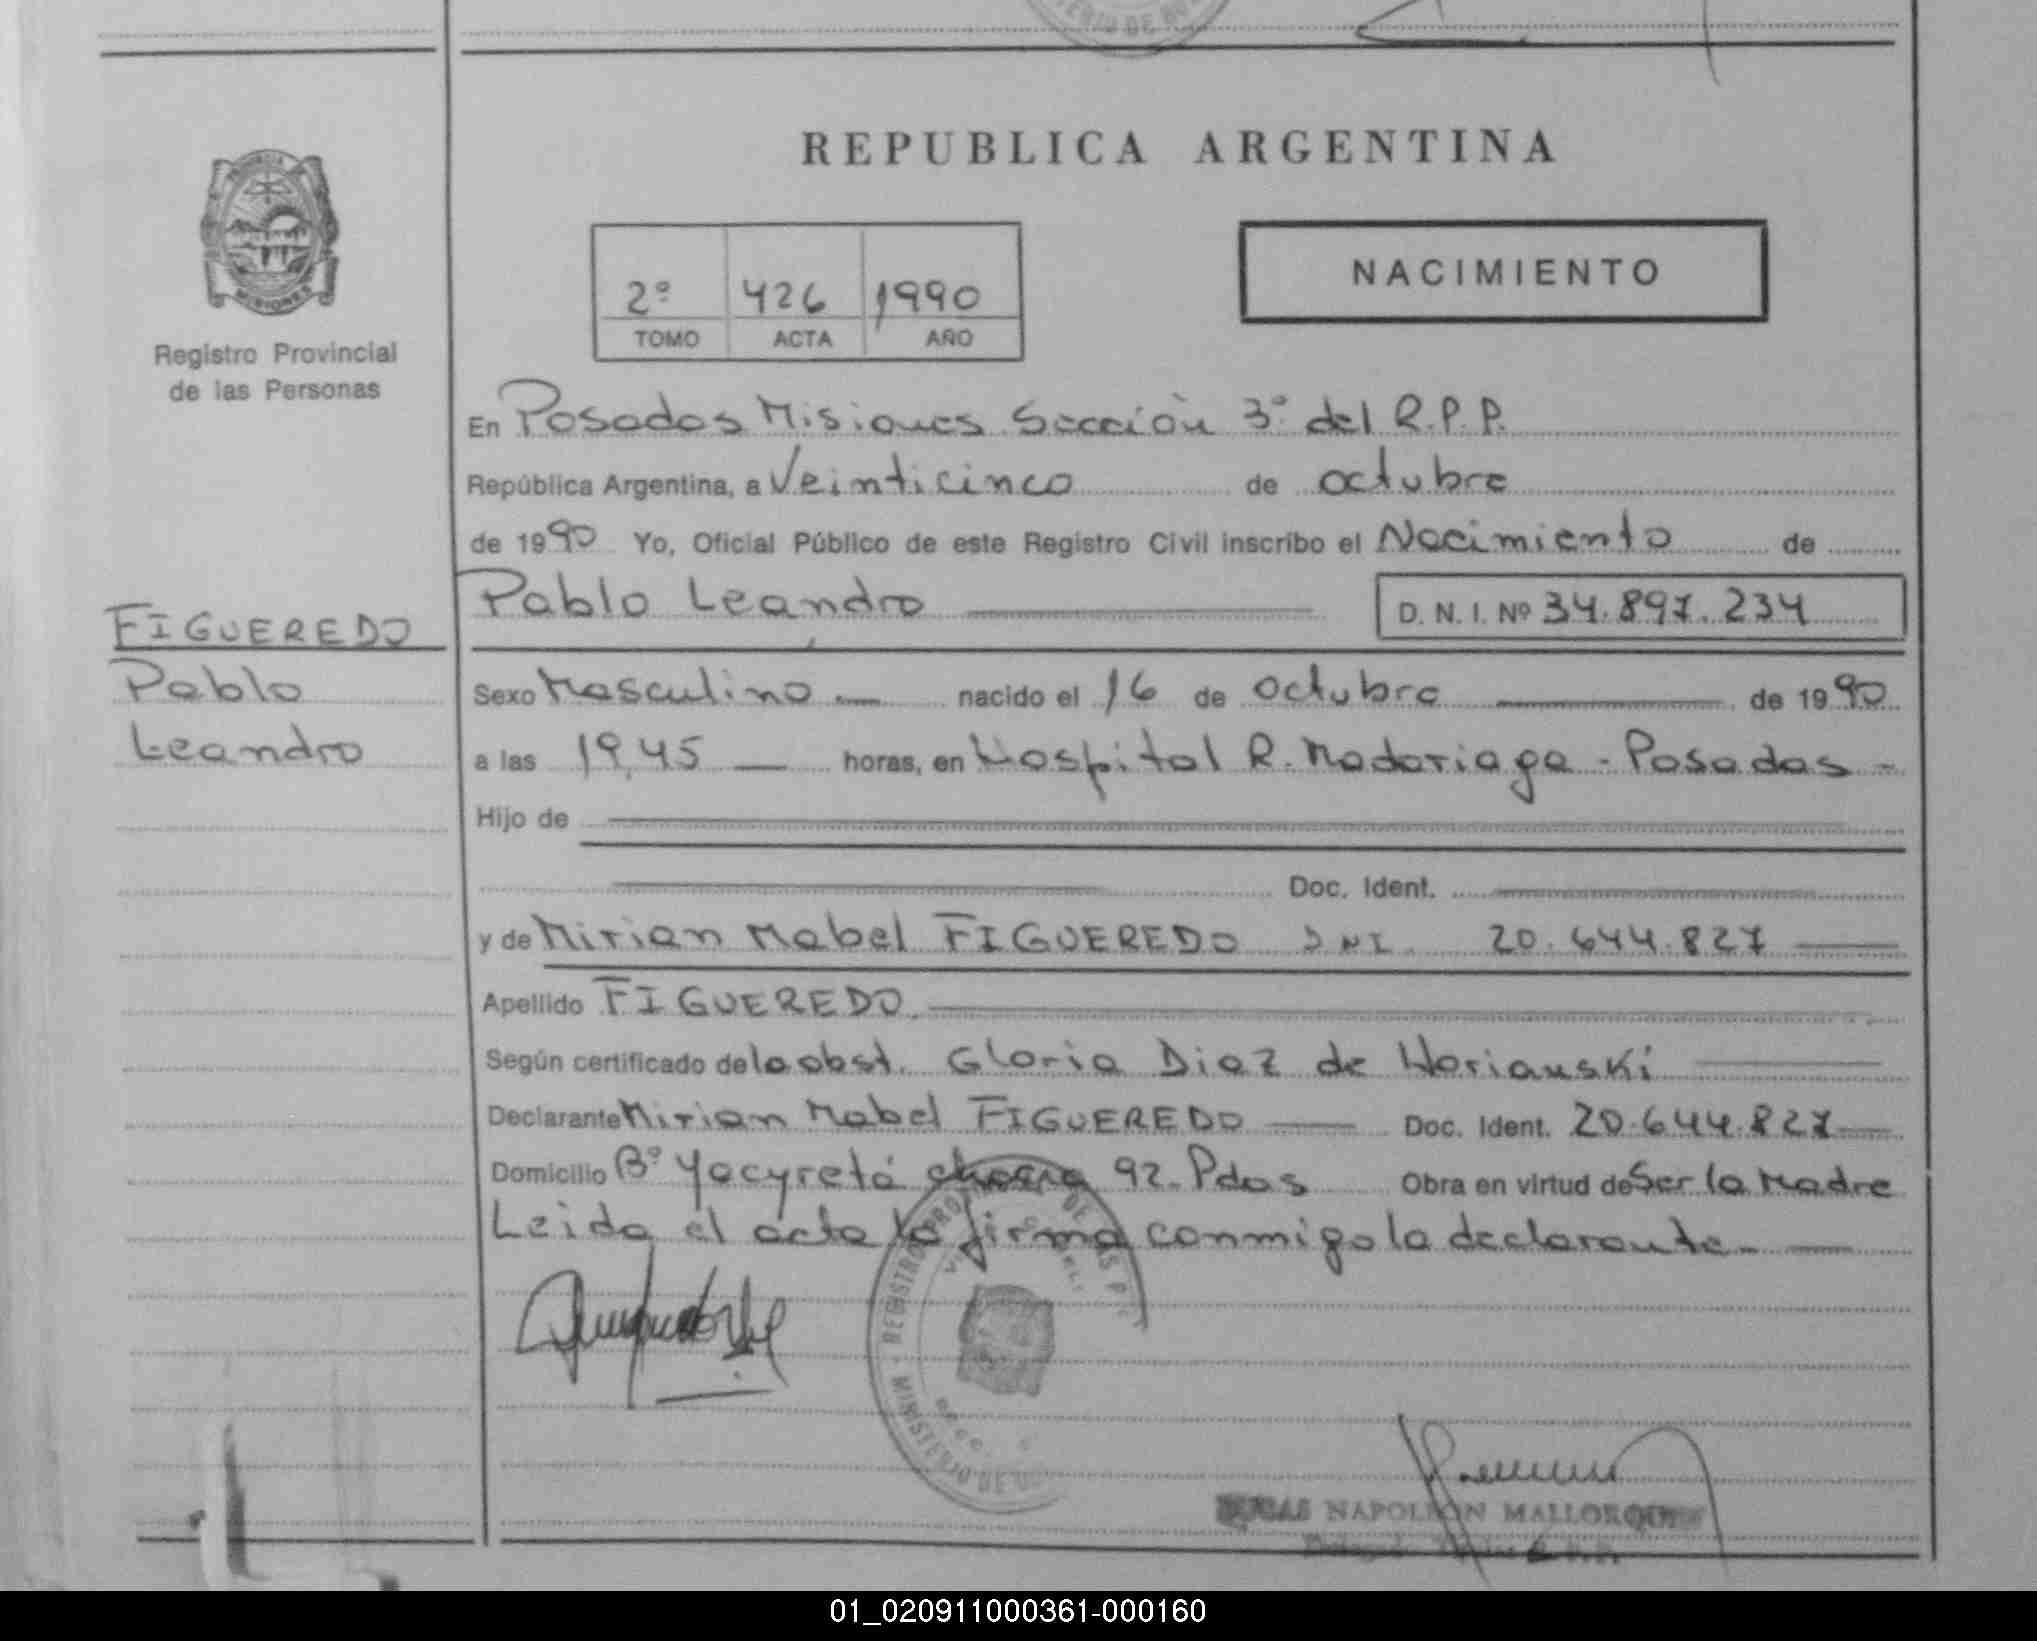 REPUBLICA ARGENTINA
NACIMIENTO
2º 426 1990
TOMO ACTA AÑO
MISIONES
Registro Provincial
de las Personas
En Posadas Misiones Sección 3º del R.P.P.
República Argentina, a Veinticinco de octubre
de 1990 Yo, Oficial Público de este Registro Civil inscribo el Nacimiento de
Pablo Leandro D. N. I. Nº 34.897.234
FIGUEREDO
Pablo
Leandro
Sexo Masculino nacido el 16 de octubre de 1990
a las 19,45 horas, en Hospital R. Madariaga - Posadas -
Hijo de
Doc. Ident.
y de Mirian Mabel FIGUEREDO DNI. 20.644.827
Apellido FIGUEREDO
Según certificado de la obst. Gloria Diaz de
Declarante Mirian Mabel FIGUEREDO Doc. Ident. 20.644.827
Domicilio Bº Yacyretá chacra 92. Pdas Obra en virtud de Ser la Madre
Leida el acta la firma conmigo la declarante.
REGISTRO DE LAS
MINISTERIO DE
NAPOLEON
01_020911000361-000160